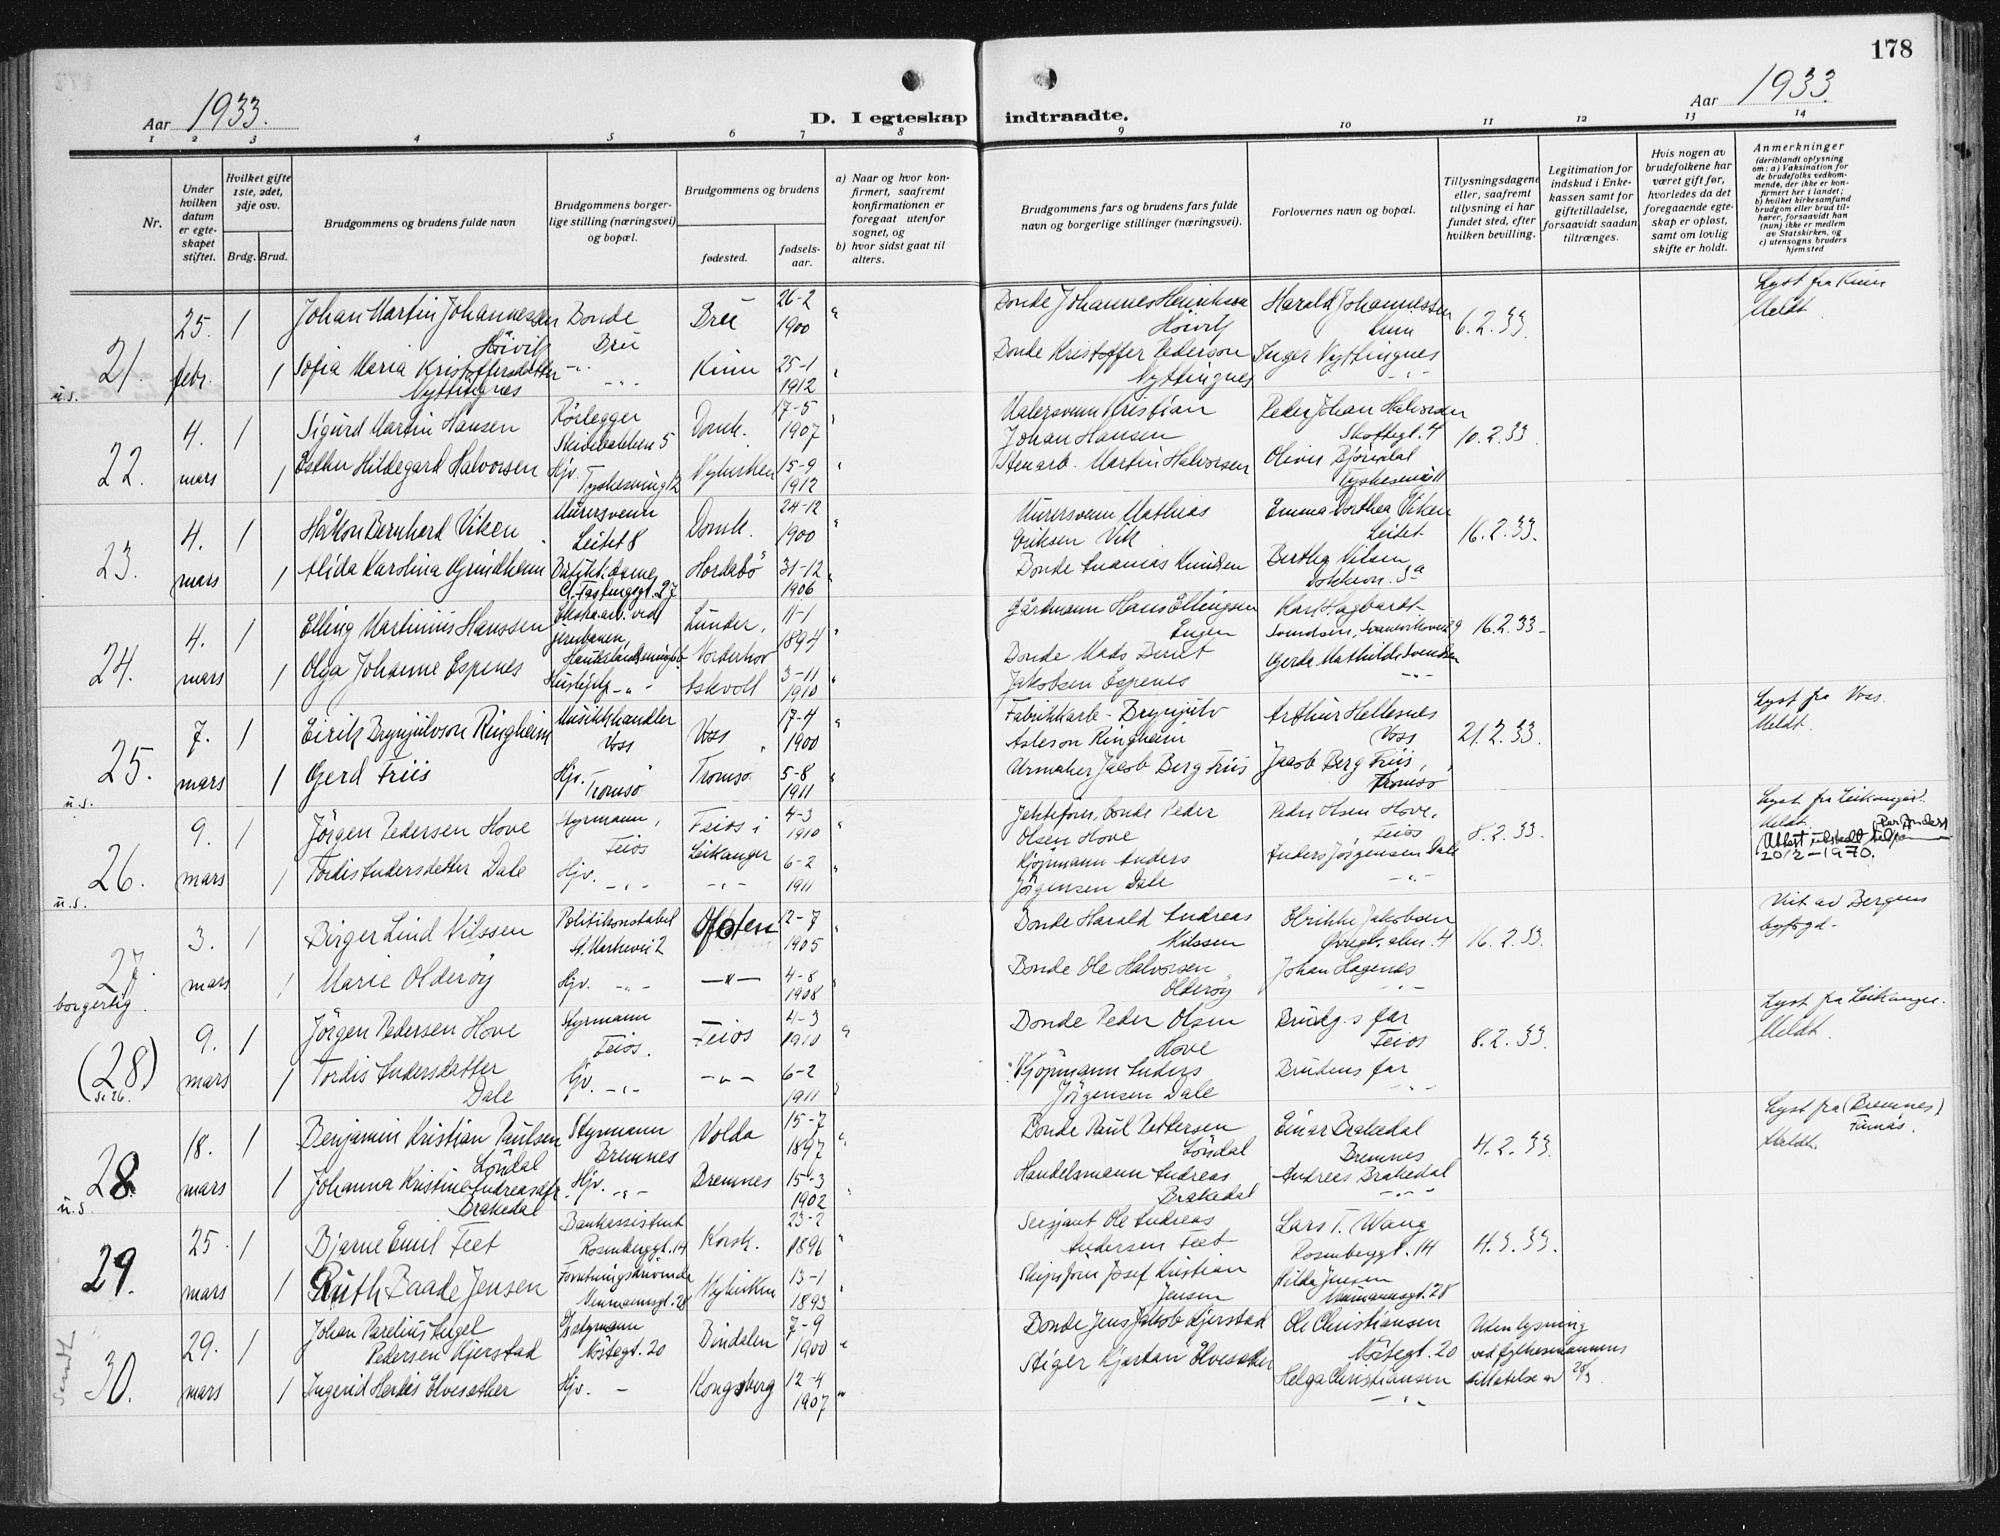 178
Aar 1933.
D. I egteskap indtraadte.
Aar 1933.
1 2 3 4 5 6 7 8 9 10 11 12 13 14
Nr.
Under hvilken datum er egteskapet stiftet.
Hvilket gifte 1ste, 2det, 3dje osv.
Brdg. Brud.
Brudgommens og brudens fulde navn
Brudgommens borgerlige stilling (næringsvei) og bopæl.
Brudgommens og brudens
fødested.
fødselsaar.
a) Naar og hvor konfirmert, saafremt konfirmationen er foregaat utenfor sognet, og
b) hvor sidst gaat til alters.
Brudgommens fars og brudens fars fulde navn og borgerlige stillinger (næringsvei).
Forlovernes navn og bopæl.
Tillysningsdagene eller, saafremt tillysning ei har fundet sted, efter hvilken bevilling.
Legitimation for indskud i Enkekassen samt for giftetilladelse, forsaavidt saadan tiltrænges.
Hvis nogen av brudefolkene har været gift før, hvorledes da det foregaaende egteskap er opløst, samt om lovlig skifte er holdt.
Anmerkninger
(deriblandt oplysning om: a) Vaksination for de brudefolks vedkommende, der ikke er konfirmert her i landet; b) hvilket kirkesamfund brudgom eller brud tilhører, forsaavidt han (hun) ikke er medlem av Statskirken, og c) utensogns bruders hjemsted
21. u.s. 25. febr. 1 Johan Martin Johannessen Høivik Bonde Bru Bru 26-2 1900 Bonde Johannes Henrikson Høivik Harald Johannessen 6.2.33. Lyst fra Kinn Meldt.
1 Sofia Maria Kristoffersdatter Nyttingnes Kinn 25-1 1912 Bonde Kristoffer Pederson Nyttingnes Inger Nyttingnes
22. 4. mars 1 Sigurd Martin Hansen Rørlegger Skivebakken 5 Domk. 17-5 1907 Malersvenn Kristian Johan Hansen Peder Johan Halvorsen Skoftegt. 4 10.2.33.
1 Esther Hildegard Halvorsen Hjv. Tyskesmug 12 Nykirken 15-9 1912 Stenarb. Martin Halvorsen Oliver Bjørndal
23. 4. mars 1 Håkon Bernhard Viken Murersvenn Leitet 8 Domk. 24-12 1900 Murersvenn Mathias Eriksen Vik Emma Dorthea Viken Leitet 16.2.33.
1 Alida Karolina Grindheim Hordabø 31-12 1906 Bonde Ananias Knudsen
24. 4. mars 1 Elling Martinius Hanssen Ekstraarb. ved jernbanen, Lunder, Norderhov 11-1 1894 Gårdmann Hans Ellingsen Engen Karl Hagbart Svendsen, 16.2.33
1 Olga Johanne Espenes Hushjelp Askvoll 3-11 1910 Bonde Mads Berut Jakobsen Espenes Gerda Mathilde Svendsen
25. u.s. 7. mars 1 Eirik Brynjulvson Ringheim Musikkhandler Voss Voss 17-4 1900 Fabrikkarb. Brynjulv Asleson Ringheim Arthur Hellesnes Voss 21.2.33. Lyst fra Voss. Meldt.
1 Gerd Friis Hjv. Tromsø Tromsø 5-8 1911 Urmaker Jacob Berg Friis Jacob Berg Friis, Tromsø
26. u.s. 9. mars 1 Jørgen Pedersen Hove Styrmann, Feios Feios i Leikanger 4-3 1910 Bonde Peder Olsen Hove Peder Olsen Hove, Feios 8.2.33. Lyst fra Leikanger. Meldt. Attest utstedt
20/2-1970.
1 Tordis Andersdatter Dale Hjv. 6-2 1911 Kjøpmann Anders Jørgensen Dale Anders Jørgensen Dale
27. borgerlig 3. mars 1 Birger Lind Nilssen Politikonstabel St. Markevei 2 Ofoten 12-7 1905 Bonde Harald Andreas Nilssen Ulrikke Jakobsen 16.2.33. Viet av Bergens byfogd.
1 Marie Olderøy Hjv. 4-8 1908 Bonde Ole Halvorsen Olderøy Johan Hagenes
(28) Se 26. 9. mars 1 Jørgen Pedersen Hove Styrmann Feios. Feios 4-3 1910 Bonde Peder Olsen Hove Brudg.s far Feios 8.2.33. Lyst fra Leikanger. Meldt.
1 Tordis Andersdatter Dale Hjv. 6-2 1911 Kjøpmann Anders Jørgensen Dale Brudens far
28. u.s. 18. mars 1 Benjamin Kristian Paulsen Løndal Styrmann Bremnes Volda 15-7 1897 Bonde Paul Pettersen Løndal Einar Brakedal Bremnes 4.2.33 Lyst fra (Bremnes) Finnås. Meldt.
1 Johanna Kristine Andreasdtr. Brakedal Hjv. Bremnes 15-3 1902 Handelsmann Andreas Brakedal Andreas Brakedal
29. 25. mars 1 Bjarne Emil Feet Bankassistent Rosenberggt. 14 Korsk. 23-2 1896 Sersjant Ole Andreas Andersen Feet Lars T. Wang Rosenberggt. 14 4.3.33.
1 Ruth Zaade Jensen Forretningsdrivende Neumannsgt. 28 Nykirken 13-1 1893 Skipsfører Josef Kristian Jensen Hilda Jensen Neumannsgt. 28
Sendt 30. 29. mars 1 Johan Parelius Angel Pedersen Kjerstad Styrmann Nøstegt. 20 Bindalen 7-9 1900 Bonde Jens Jakob Kjerstad Ole Christiansen Nøstegt. 20 Uten lysning ved fylkesmannens tillatelse av 28/3
1 Ingerid Herlis Elvesæther Hjv. Kongsberg 12-4 1907 Stiger Kjartan Elvesæther Helga Christiansen